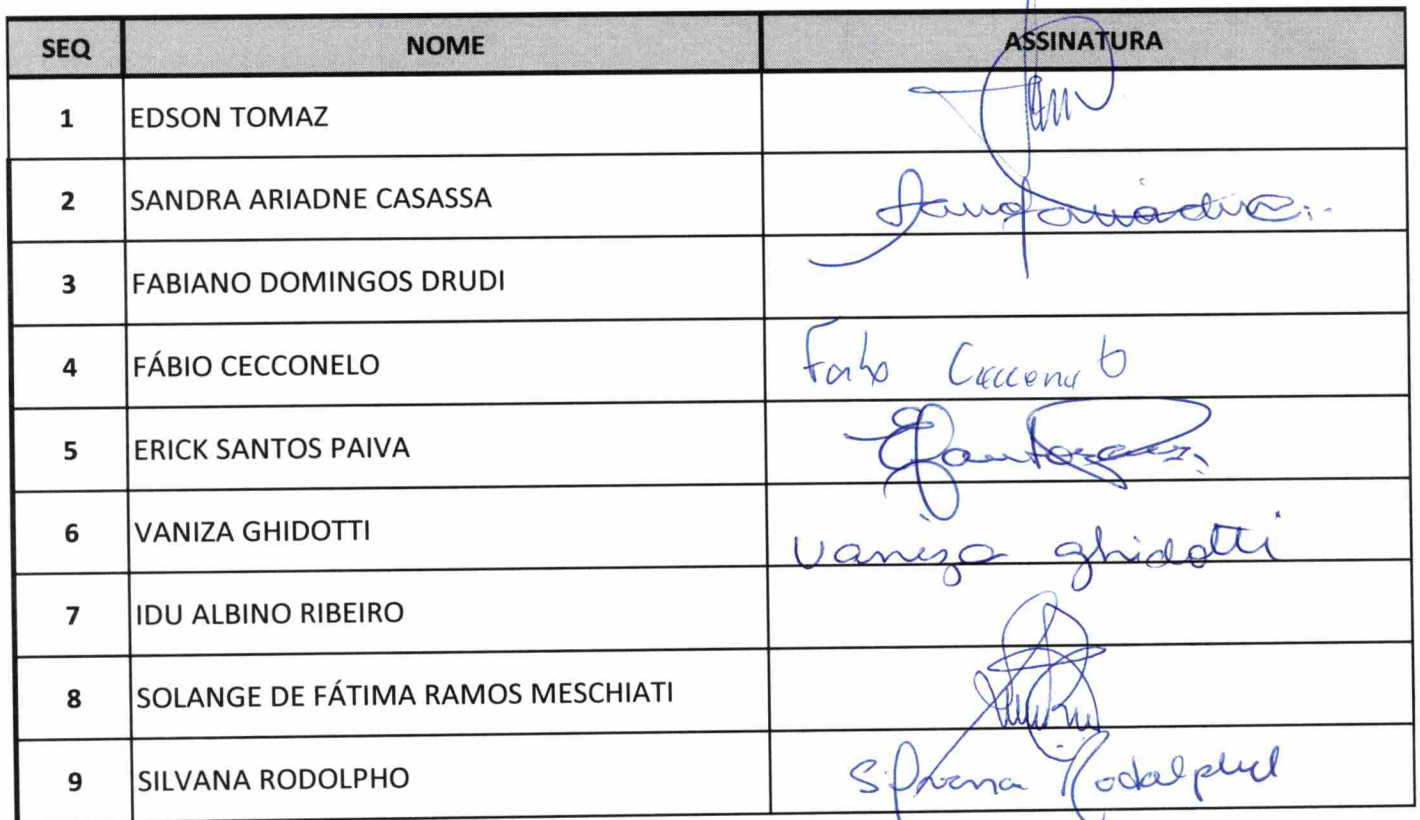 SEQ NOME ASSINATURA
1 EDSON TOMAZ
2 SANDRA ARIADNE CASASSA
3 FABIANO DOMINGOS DRUDI
4 FÁBIO CECCONELO Fabio
5 ERICK SANTOS PAIVA
6 VANIZA GHIDOTTI Vaniza ghidotti
7 IDU ALBINO RIBEIRO
8 SOLANGE DE FÁTIMA RAMOS MESCHIATI
9 SILVANA RODOLPHO Silvana Rodolpho